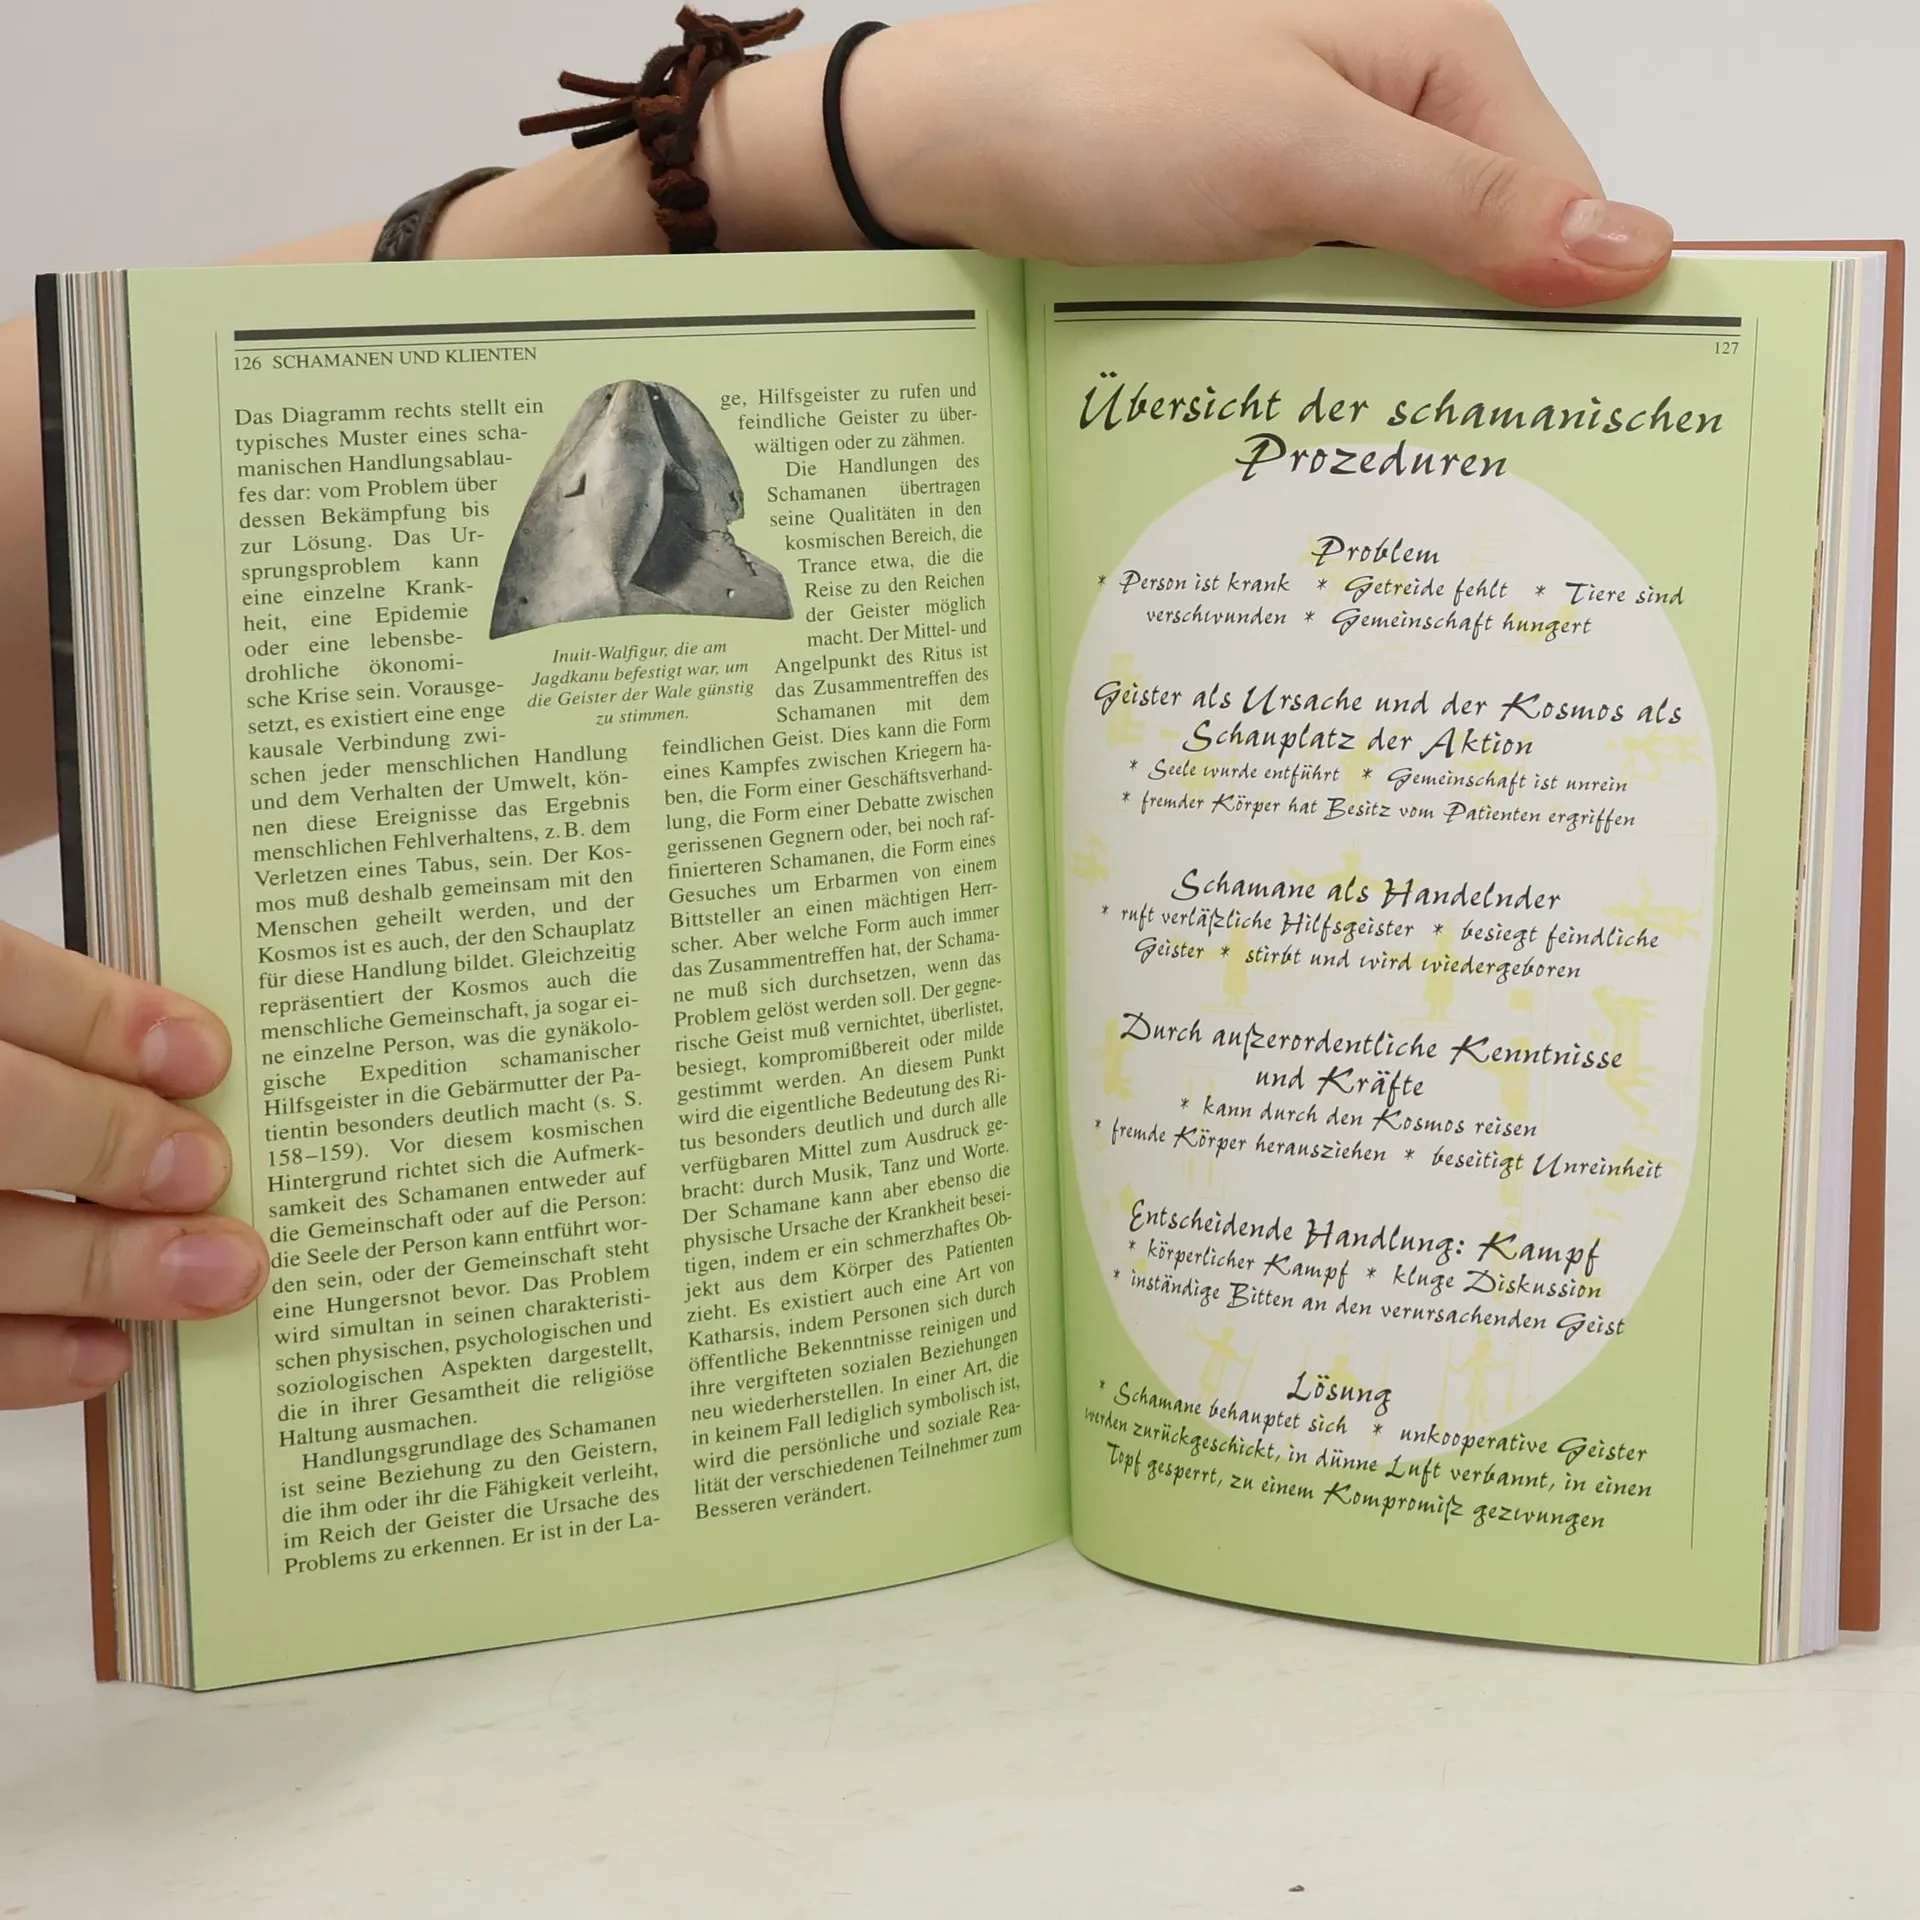 126 SCHAMANEN UND KLIENTEN
Das Diagramm rechts stellt ein
typisches Muster eines scha-
manischen Handlungsablau-
fes dar: vom Problem über
dessen Bekämpfung bis
zur Lösung. Das Ur-
sprungsproblem kann
eine einzelne Krank-
heit, eine Epidemie
oder eine lebensbe-
drohliche ökonomi-
sche Krise sein. Vorausge-
setzt, es existiert eine enge
kausale Verbindung zwi-
schen jeder menschlichen Handlung
und dem Verhalten der Umwelt, kön-
nen diese Ereignisse das Ergebnis
menschlichen Fehlverhaltens, z. B. dem
Verletzen eines Tabus, sein. Der Kos-
mos muß deshalb gemeinsam mit den
Menschen geheilt werden, und der
Kosmos ist es auch, der den Schauplatz
für diese Handlung bildet. Gleichzeitig
repräsentiert der Kosmos auch die
menschliche Gemeinschaft, ja sogar ei-
ne einzelne Person, was die gynäkolo-
gische Expedition schamanischer
Hilfsgeister in die Gebärmutter der Pa-
tientin besonders deutlich macht (s. S.
158–159). Vor diesem kosmischen
Hintergrund richtet sich die Aufmerk-
samkeit des Schamanen entweder auf
die Gemeinschaft oder auf die Person:
die Seele der Person kann entführt wor-
den sein, oder der Gemeinschaft steht
eine Hungersnot bevor. Das Problem
wird simultan in seinen charakteristi-
schen physischen, psychologischen und
soziologischen Aspekten dargestellt,
die in ihrer Gesamtheit die religiöse
Haltung ausmachen.
Handlungsgrundlage des Schamanen
ist seine Beziehung zu den Geistern,
die ihm oder ihr die Fähigkeit verleiht,
im Reich der Geister die Ursache des
Problems zu erkennen. Er ist in der La-
Inuit-Walfigur, die am
Jagdkanu befestigt war, um
die Geister der Wale günstig
zu stimmen.
ge, Hilfsgeister zu rufen und
feindliche Geister zu über-
wältigen oder zu zähmen.
Die Handlungen des
Schamanen übertragen
seine Qualitäten in den
kosmischen Bereich, die
Trance etwa, die die
Reise zu den Reichen
der Geister möglich
macht. Der Mittel- und
Angelpunkt des Ritus ist
das Zusammentreffen des
Schamanen mit dem
feindlichen Geist. Dies kann die Form
eines Kampfes zwischen Kriegern ha-
ben, die Form einer Geschäftsverhand-
lung, die Form einer Debatte zwischen
gerissenen Gegnern oder, bei noch raf-
finierteren Schamanen, die Form eines
Gesuches um Erbarmen von einem
Bittsteller an einen mächtigen Herr-
scher. Aber welche Form auch immer
das Zusammentreffen hat, der Schama-
ne muß sich durchsetzen, wenn das
Problem gelöst werden soll. Der gegne-
rische Geist muß vernichtet, überlistet,
besiegt, kompromißbereit oder milde
gestimmt werden. An diesem Punkt
wird die eigentliche Bedeutung des Ri-
tus besonders deutlich und durch alle
verfügbaren Mittel zum Ausdruck ge-
bracht: durch Musik, Tanz und Worte.
Der Schamane kann aber ebenso die
physische Ursache der Krankheit besei-
tigen, indem er ein schmerzhaftes Ob-
jekt aus dem Körper des Patienten
zieht. Es existiert auch eine Art von
Katharsis, indem Personen sich durch
öffentliche Bekenntnisse reinigen und
ihre vergifteten sozialen Beziehungen
neu wiederherstellen. In einer Art, die
in keinem Fall lediglich symbolisch ist,
wird die persönliche und soziale Rea-
lität der verschiedenen Teilnehmer zum
Besseren verändert.
127
Übersicht der schamanischen
Prozeduren
Problem
* Person ist krank * Getreide fehlt * Tiere sind
verschwunden * Gemeinschaft hungert
Geister als Ursache und der Kosmos als
Schauplatz der Aktion
* Seele wurde entführt * Gemeinschaft ist unrein
* fremder Körper hat Besitz vom Patienten ergriffen
Schamane als Handelnder
* ruft verläßliche Hilfsgeister * besiegt feindliche
Geister * stirbt und wird wiedergeboren
Durch außerordentliche Kenntnisse
und Kräfte
* kann durch den Kosmos reisen
* fremde Körper herausziehen * beseitigt Unreinheit
Entscheidende Handlung: Kampf
* körperlicher Kampf * kluge Diskussion
* inständige Bitten an den verursachenden Geist
Lösung
* Schamane behauptet sich * unkooperative Geister
werden zurückgeschickt, in dünne Luft verbannt, in einen
Topf gesperrt, zu einem Kompromiß gezwungen